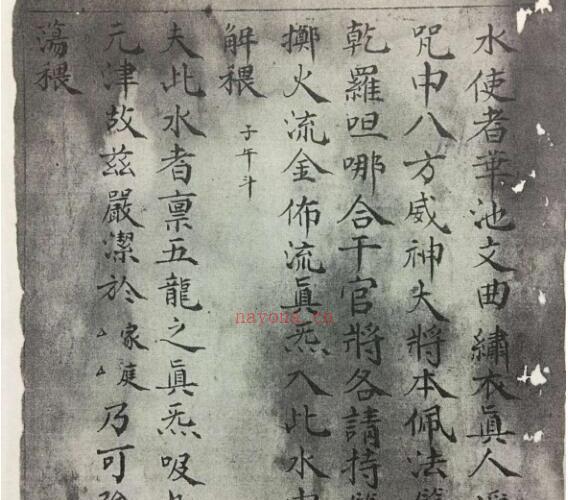 水使者華池文曲繡衣真人
咒中八方威神大將本佩法
乾羅呾哪合千官將各請持
擲火流金佈流眞炁入此水
解穢 子午斗
夫此水者禀五龍之眞炁吸
元津故兹嚴潔於家庭乃可
蕩穢
nayona.cn